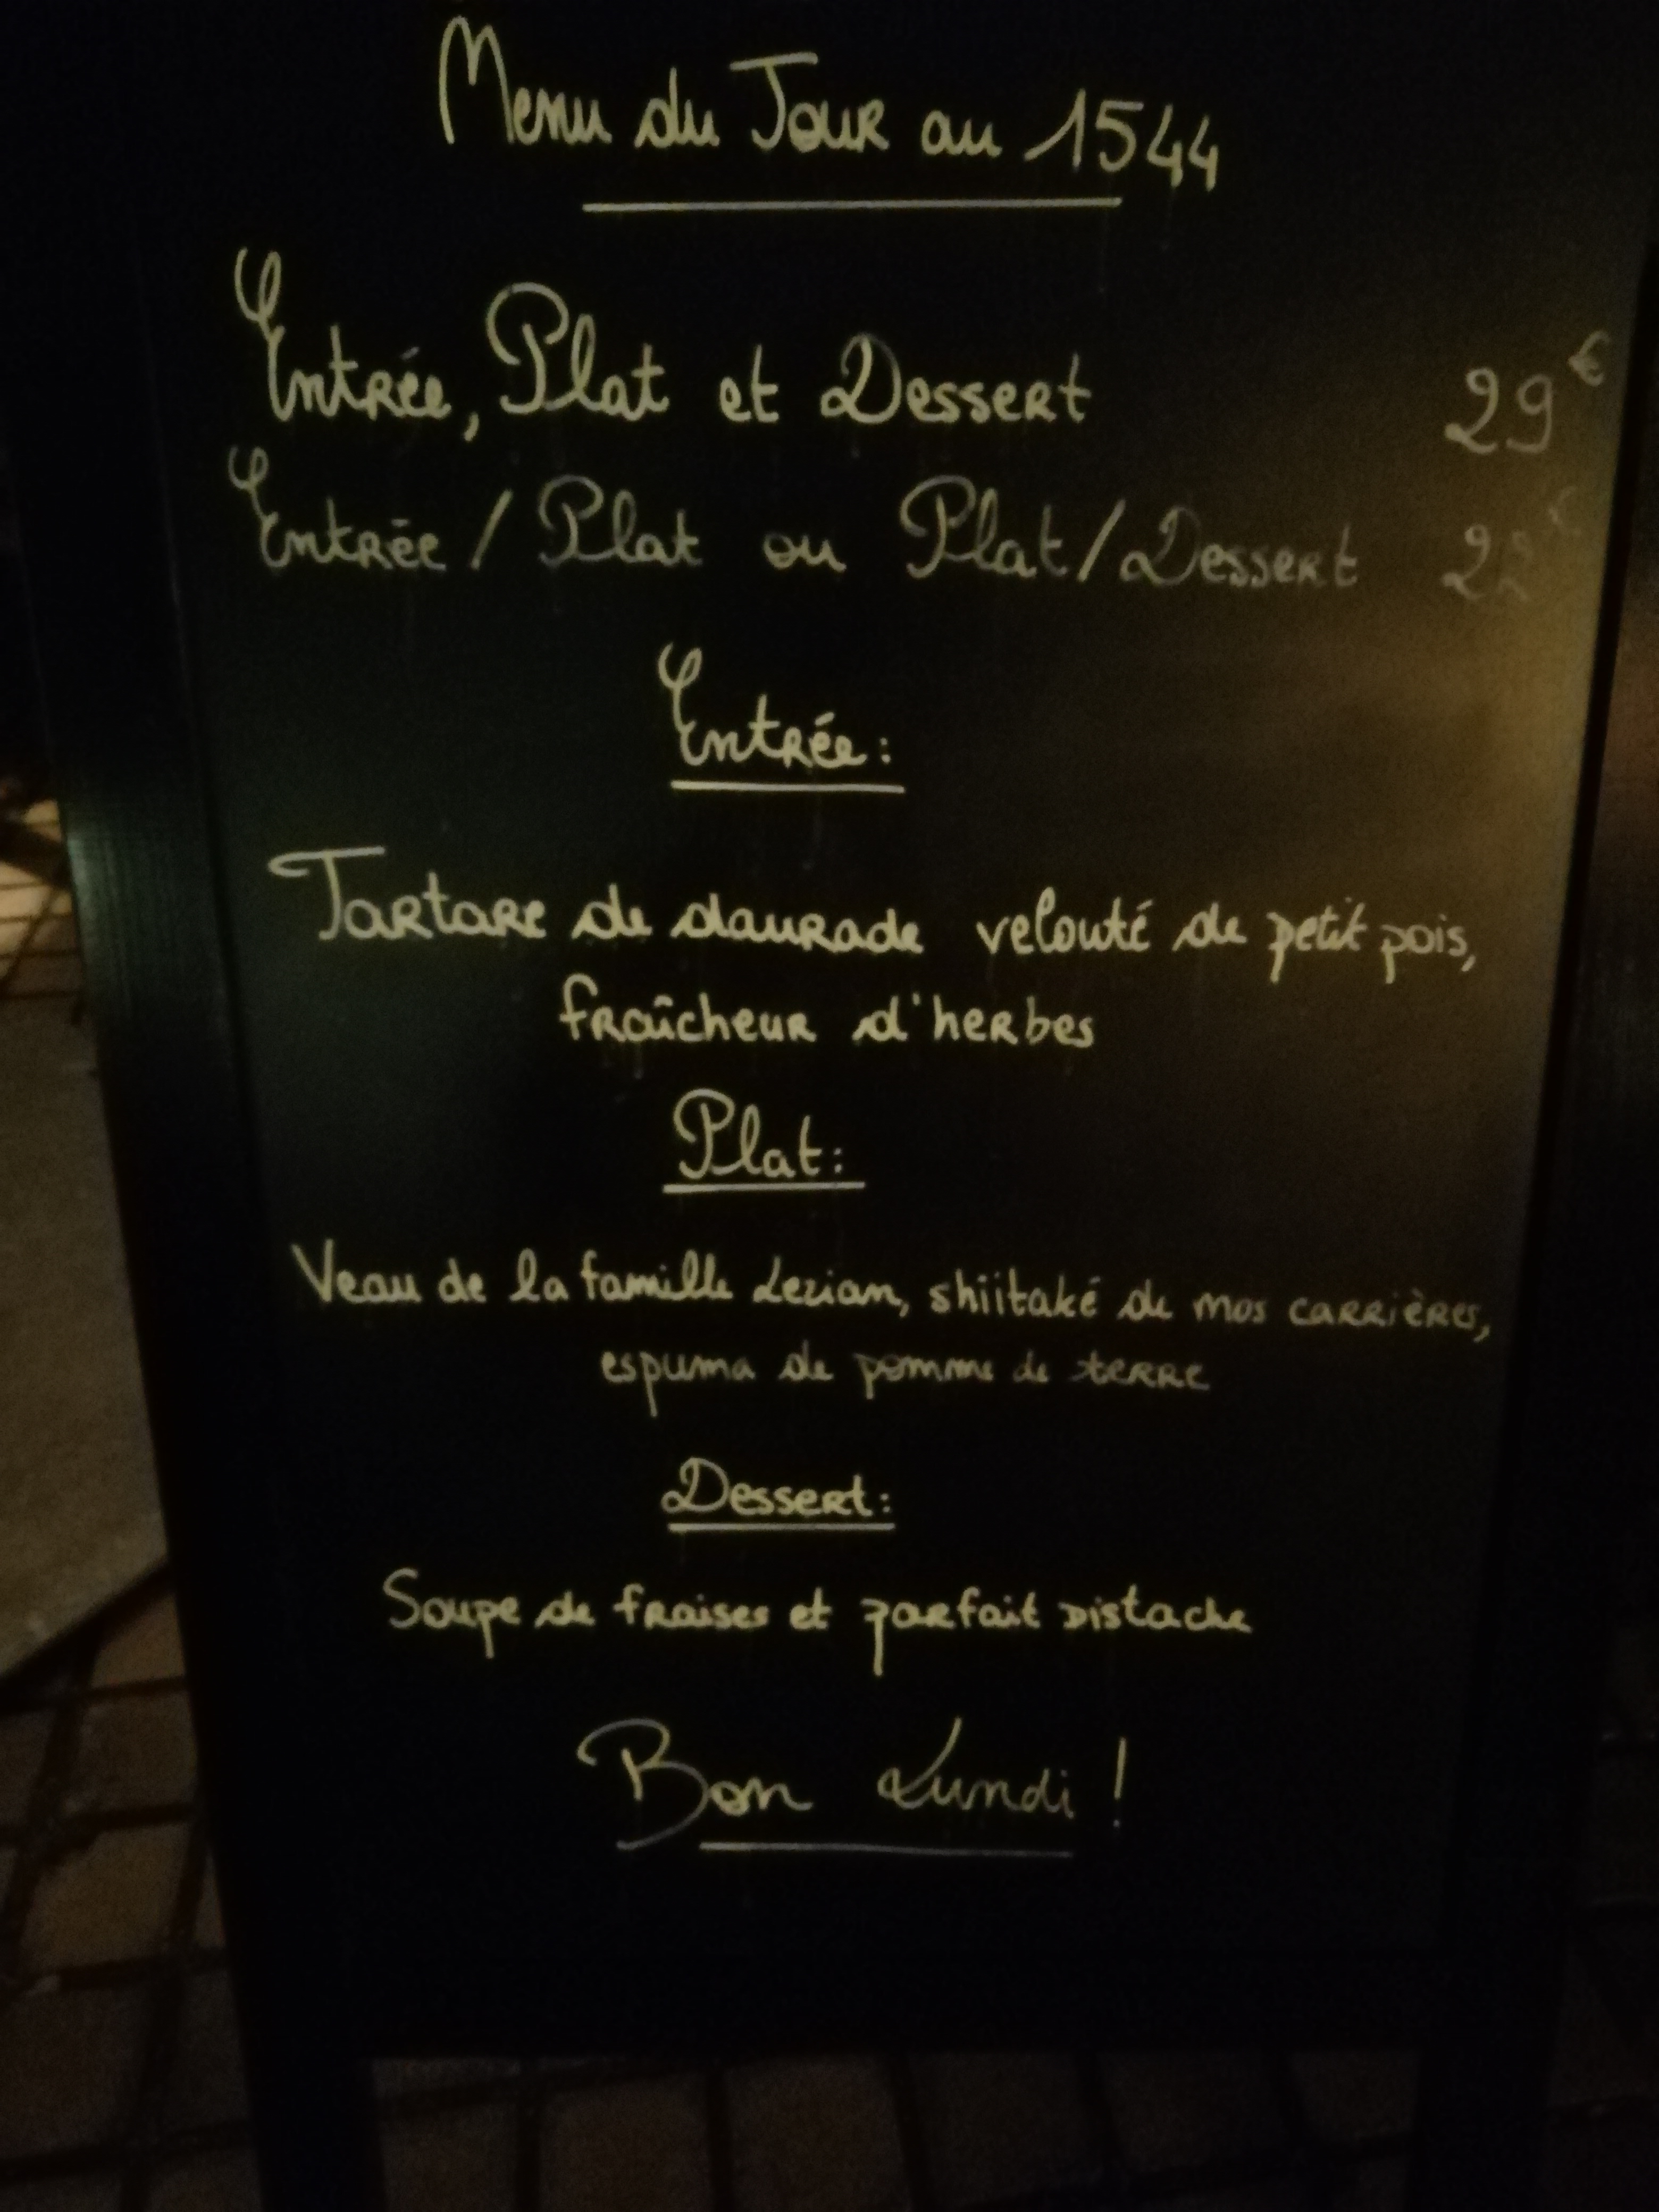 Menu du Jour au 1544
Entrée, Plat et Dessert 29€
Entrée / Plat ou Plat/Dessert 22€
Entrée:
Tartare de daurade velouté de petit pois,
fraîcheur d'herbes
Plat:
Veau de la famille Lezian, shiitaké de nos carrières,
espuma de pomme de terre
Dessert:
Soupe de fraises et parfait pistache
Bon Lundi !